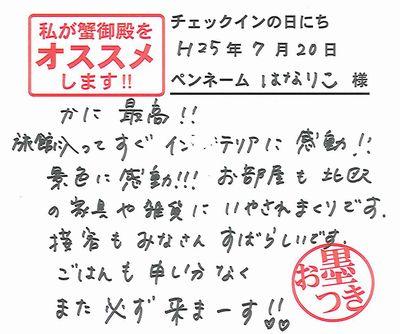 私が蟹御殿を
オススメ
します!!
チェックインの日にち
H25年7月20日
ペンネーム はなりこ 様
かに 最高!!
旅館入ってすぐ インテリアに 感動!!
景色に感動!!! お部屋も 北欧
の家具や雑貨に いやされまくりです.
接客も みなさん すばらしいです.
ごはんも 申し分なく
また 必ず 来まーす!!
お墨つき